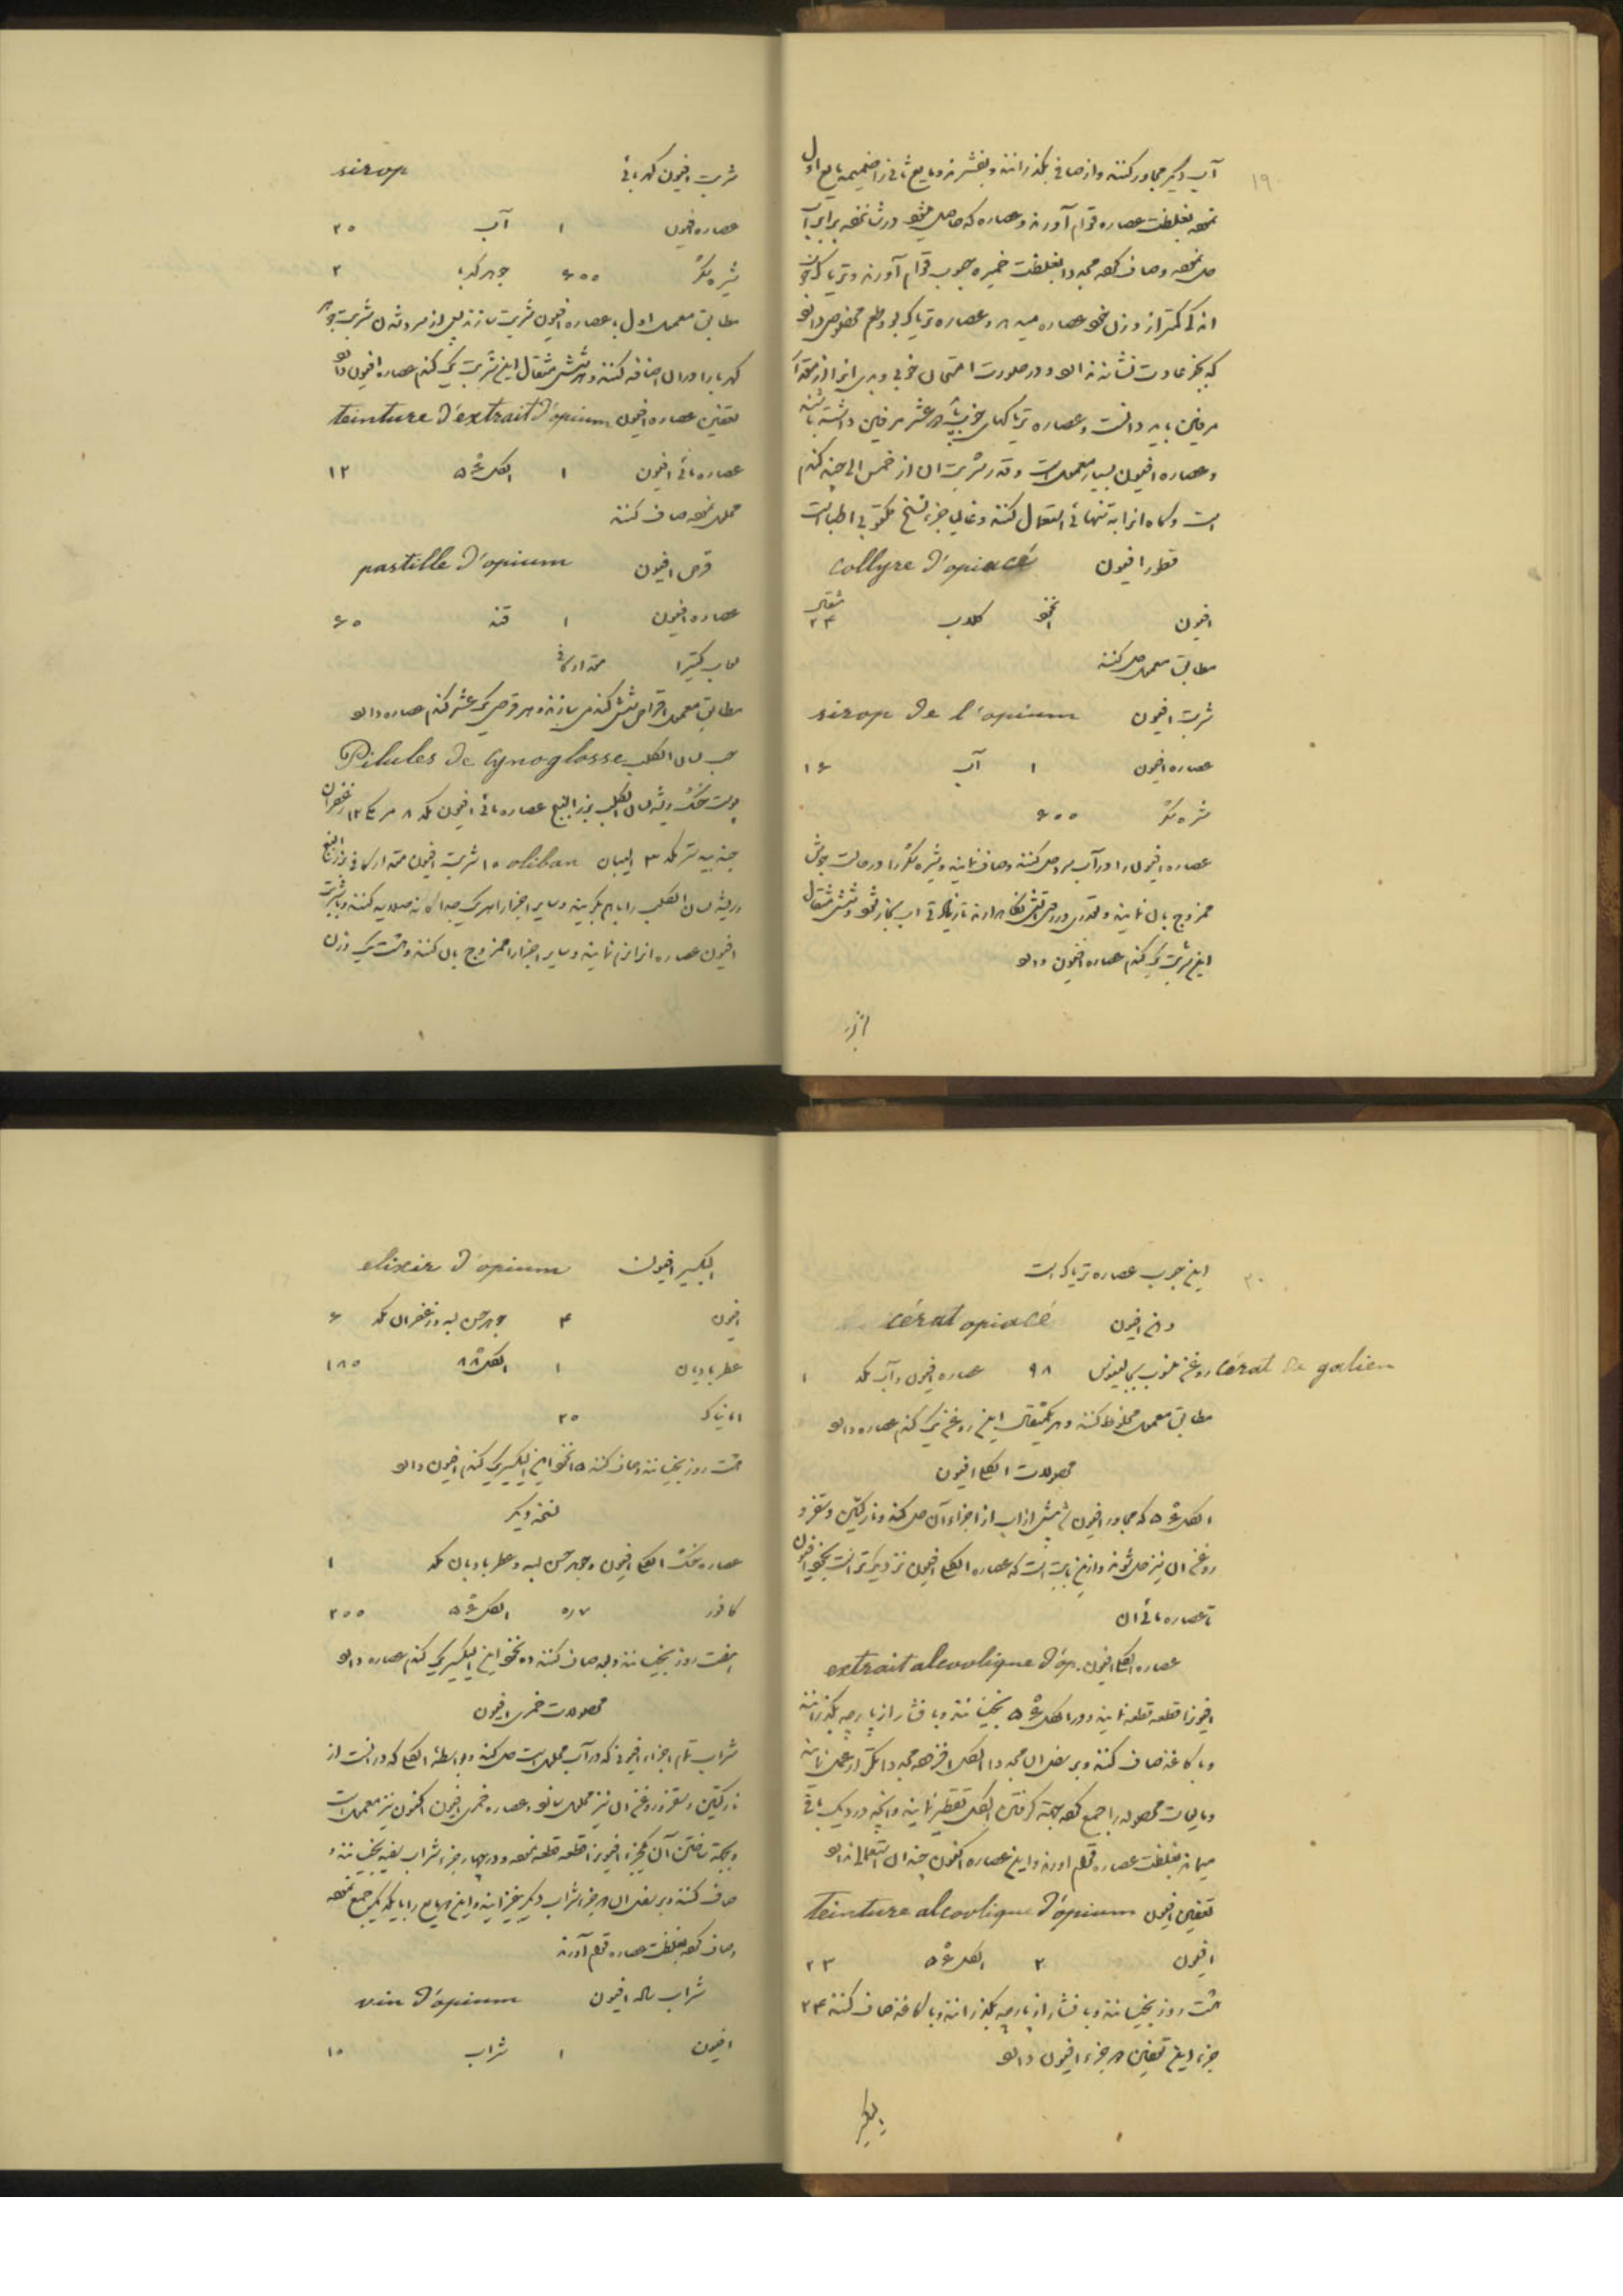 ۱۹
آب دیگر مجاور کنند و از صافی بگذرانند و بفشرند و مایع ثانی را ضمیمه مایع اول
نموده بغلظت عصاره قوام آورند و عصاره که حاصل میشود در شانزده برابر آب
حل نموده و صاف کرده مجددا بغلظت خمیره حبوب قوام آورند و تریاک
اندکی کمتر از وزن خود عصاره میدهد و عصاره تریاک بو و طعم مخصوص دارد
که بجز عادت نشاند و در صورت امتحان خوبی و بدی آنرا از مقدار
مرفین باید دانست و عصاره تریاکهای خوب باید عشر مرفین داشته باشد
و عصاره افیون بسیار معمول است و قدر شربت آن از خمس الی چند گندم
است و گاه آنرا به تنهائی استعمال کنند و غالبا جزء نسخ مکتوبی اطبا است
قطور افیون collyre d'opiacé
افیون نخود گلاب مثقال ۲۴
مطابق معمول حل کنند
شربت افیون sirop de l'opium
عصاره افیون ۱ آب ۱۶
شیره شکر ۶۰۰
عصاره افیون را در آب سرد حل کنند و صاف نمایند و شیره شکر را در حالت جوش
ممزوج بآن نمایند و قدری در روی آتش نگاه دارند تا زیادتی آب بخار شود و شش مثقال
این شربت یک گندم عصاره افیون دارد
شربت افیون کهربائی sirop
عصاره افیون ۱ آب ۲۰
شیره شکر ۶۰۰ جوهر کهربا ۲
مطابق معمول اول با عصاره افیون شربت سازند پس از سرد شدن شربت جوهر
کهربا را در آن اضافه کنند و هر شش مثقال این شربت یک گندم عصاره افیون دارد
تعفین عصاره افیون teinture d'extrait d'opium
عصاره مائی افیون ۱ الکل ۵۶ ۱۲
محلول نموده صاف کنند
قرص افیون pastille d'opium
عصاره افیون ۱ قند ۶۰
لعاب کتیرا مقدار کافی
مطابق معمول اقراص شش گندمی سازند و هر قرصی یک عشر گندم عصاره دارد
حب لسان الکلب Pilules de Cynoglosse
پوست خشک ریشه لسان الکلب بزرالبنج عصاره مائی افیون مکد ۸ مر مکی ۱۲ زعفران
جندبیدستر مکد ۳ البان oliban ۱۰ شربت افیون مقدار کافی بزرالبنج
و ریشه لسان الکلب را با هم بکوبند و سایر اجزا را هر یک جداگانه صلایه کنند و با شربت
افیون عصاره را نرم نمایند و سایر اجزا را ممزوج بآن کنند و هشت یک وزن
۲۰
این حبوب عصاره تریاک است
دهن افیون cérat opiacé
cérat de galien روغن منسوب بجالینوس ۹۸ عصاره افیون و آب مکد ۱
مطابق معمول مخلوط کنند و هر یکمثقال این روغن یک گندم عصاره دارد
محصولات الکلی افیون
الکل ۵۶ که مجاور افیون شد بیش از آب از اجزاء آن حل کند و نارکتین و سقز و
روغن آن نیز حل شوند و از این بابت است که عصاره الکلی افیون نزدیکتر است بخود افیون
تا عصاره مائی آن
عصاره الکلی افیون extrait alcoolique d'op.
افیونرا قطعه قطعه نمایند و در الکل ۵۶ بخیسانند و با فشار از پارچه بگذرانند
و با کاغذ صاف کنند و بر تفل آن مجددا الکل افزوده مجددا تکرار عمل نمایند
و مایعات محصوله را جمع کرده بجهة گرفتن الکل تقطیر نمایند و آنچه در دیگ باقی
میماند بغلظت عصاره قوام آورند و این عصاره اکنون چندان استعمالی ندارد
تعفین افیون Teinture alcoolique d'opium
افیون ۲ الکل ۵۶ ۲۳
هشت روز بخیسانند و با فشار از پارچه بگذرانند و با کاغذ صاف کنند ۲۴
جزء این تعفین ۲ جزء افیون دارد
اکسیر
اکسیر افیون elixir d'opium
افیون ۴ جوهر حسن لبه و زعفران مکد ۶
عطر بادیان ۱ الکل ۸۸ ۱۸۰
امنیاک ۲۰
هشت روز بخیسانند و صاف کنند ۵ نخود این اکسیر یک گندم افیون دارد
نسخه دیگر
عصاره خشک الکلی افیون و جوهر حسن لبه و عطر بادیان مکد ۱
کافور الکل ۵۶ ۲۰۰
هفت روز بخیسانند و بعد صاف کنند ده نخود این اکسیر یک گندم عصاره دارد
محصولات خمری افیون
شراب تمام اجزاء افیونی که در آب محلول است حل کند و بواسطه الکلی که در آنست از
نارکتین و سقز و روغن آن نیز محلول سازد و عصاره خمری افیون اکنون نیز معمول است
و بجهة ساختن آن یکجزء افیونرا قطعه قطعه نموده و در چهار جزء شراب سفید بخیسانند و
صاف کنند و بر تفل آن ۲ جزء شراب دیگر بیفزایند و این دو مایع را با یکدیگر جمع نموده
و صاف کرده بغلظت عصاره قوام آورند
شراب ساده افیون vin d'opium
افیون ۱ شراب ۱۰